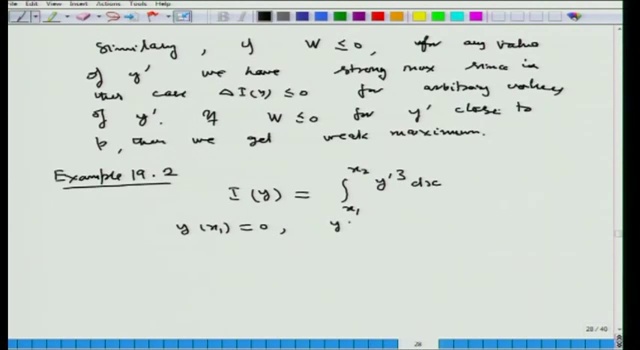 File View Insert Actions Tools Help
Similarly, if W ≤ 0, for any value
of y' we have strong max since in
this case ΔI(y) ≤ 0 for arbitrary values
of y'. If W ≤ 0 for y' close to
p, then we get weak maximum.
Example 19.2
I(y) = ∫_{x₁}^{x₂} y'³ dx
y(x₁) = 0, y
28 / 40
28